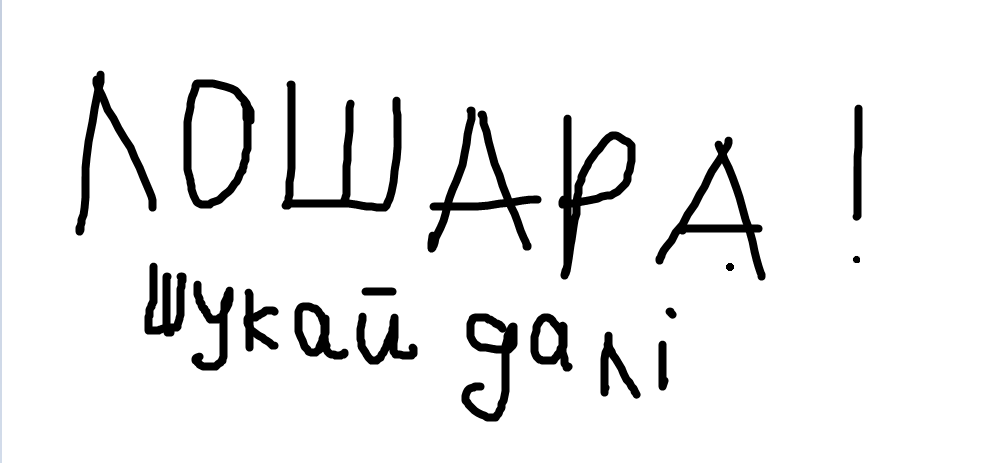 ЛОШАРА!
шукай далі